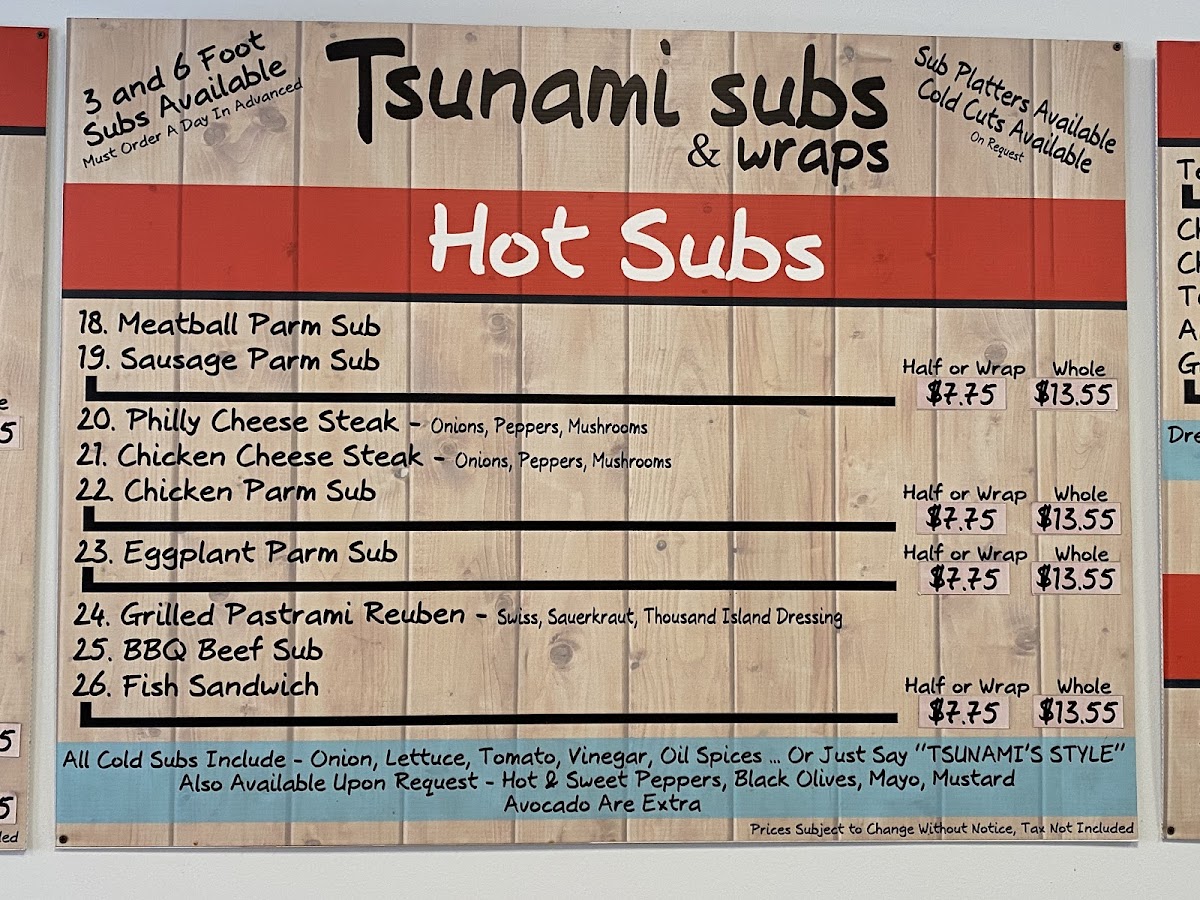 3 and 6 Foot
Subs Available
Must Order A Day In Advanced
Tsunami subs
& wraps
Sub Platters Available
Cold Cuts Available
On Request
Hot Subs
18. Meatball Parm Sub
19. Sausage Parm Sub
Half or Wrap Whole
$7.75 $13.55
20. Philly Cheese Steak - Onions, Peppers, Mushrooms
21. Chicken Cheese Steak - Onions, Peppers, Mushrooms
22. Chicken Parm Sub
Half or Wrap Whole
$7.75 $13.55
23. Eggplant Parm Sub
Half or Wrap Whole
$7.75 $13.55
24. Grilled Pastrami Reuben - Swiss, Sauerkraut, Thousand Island Dressing
25. BBQ Beef Sub
26. Fish Sandwich
Half or Wrap Whole
$7.75 $13.55
All Cold Subs Include - Onion, Lettuce, Tomato, Vinegar, Oil Spices ... Or Just Say "TSUNAMI'S STYLE"
Also Available Upon Request - Hot & Sweet Peppers, Black Olives, Mayo, Mustard
Avocado Are Extra
Prices Subject to Change Without Notice, Tax Not Included